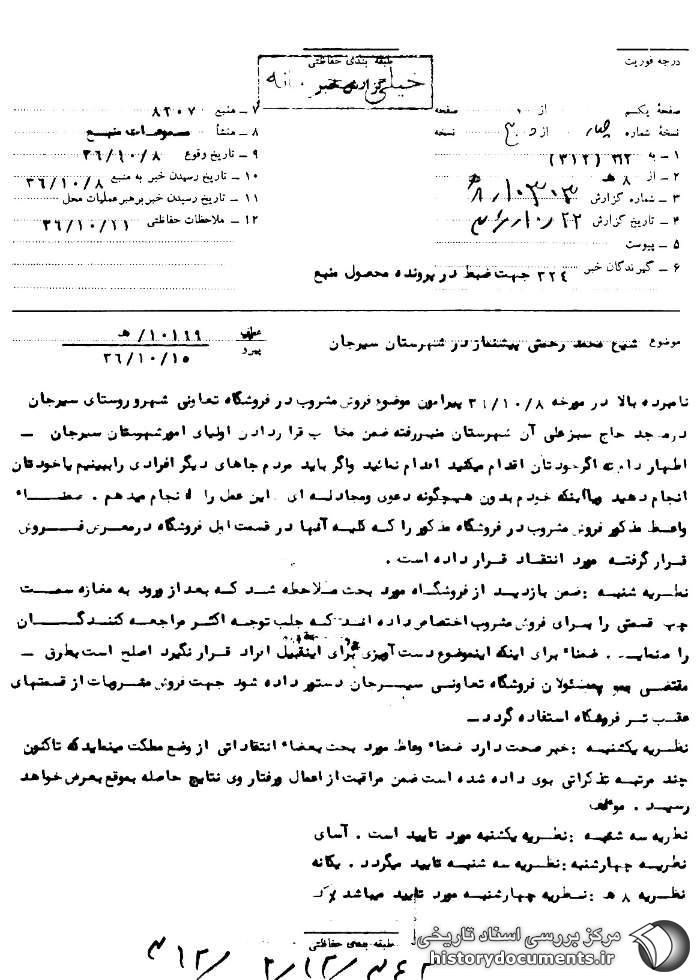 درجه فوریت
طبقه بندی حفاظتی
خیلی محرمانه
گزارش خبر
صفحهٔ یکم از ۱ صفحه
نسخهٔ شماره چهار از نسخه
۱ ـ به ۳۱۲ (۳۱۲)
۲ ـ از ۸ هـ
۳ ـ شماره گزارش ۱۰۳۰۳/ ۸هـ
۴ ـ تاریخ گزارش ۳۶/۱۰/۲۲
۵ ـ پیوست
۶ ـ گیرندگان خبر ۳۲۴ جهت ضبط در پرونده محصول منبع
۷ ـ منبع ۸۲۰۷
۸ ـ منشأ مسموعات منبع
۹ ـ تاریخ وقوع ۳۶/۱۰/۸
۱۰ ـ تاریخ رسیدن خبر به منبع ۳۶/۱۰/۸
۱۱ ـ تاریخ رسیدن خبر برهبر عملیات محل
۱۲ ـ ملاحظات حفاظتی ۳۶/۱۰/۱۱
موضوع شیخ محمد رحمتی پیشنماز در شهرستان سیرجان
عطف پیرو ۱۰۱۹۹/هـ
۳۶/۱۰/۱۵
نامبرده بالا در مورخه ۳۶/۱۰/۸ پیرامون موضوع فروش مشروب در فروشگاه تعاونی شهر و روستای سیرجان
در مسجد حاج سبزعلی آن شهرستان منبر رفته ضمن مخاطب قرار دادن اولیای امور شهرستان سیرجان ـ
اظهار داشته اگر خودتان اقدام میکنید اقدام نمائید واگر باید مردم جاهای دیگر افرادی را ببینیم یا خودتان
انجام دهید ویا اینکه خودم بدون هیچگونه دعوی ومجادله ای این عمل را انجام میدهم . ضمناً
واعظ مذکور فروش مشروب در فروشگاه مذکور را که کلیه آنها در قسمت اول فروشگاه در معرض فروش
قرار گرفته مورد انتقاد قرار داده است .
نظریه شنبه : ضمن بازدید از فروشگاه مورد بحث ملاحظه شد که بعد از ورود به مغازه سمت
چپ قسمتی را برای فروش مشروب اختصاص داده اند که جلب توجه اکثر مراجعه کنندگان
را مینماید . ضمناً برای اینکه اینموضوع دست آویزی برای اینقبیل افراد قرار نگیرد اصلح است بطرق ـ
مقتضی به مسئولان فروشگاه تعاونی سیرجان دستور داده شود جهت فروش مشروبات از قسمتهای
عقب تر فروشگاه استفاده گردد ـ
نظریه یکشنبه : خبر صحت دارد ضمناً واعظ مورد بحث بعضاً انتقاداتی از وضع مملکت مینماید که تاکنون
چند مرتبه تذکراتی بوی داده شده است ضمن مراقبت از اعمال ورفتار وی نتایج حاصله بموقع بعرض خواهد
رسید . موثق
نظریه سه شنبه : نظریه یکشنبه مورد تایید است . آسای
نظریه چهارشنبه : نظریه سه شنبه تایید میگردد . یگانه
نظریه ۸ هـ : نظریه چهارشنبه مورد تایید میباشد
طبقه بندی حفاظتی
مرکز بررسی اسناد تاریخی
historydocuments.ir